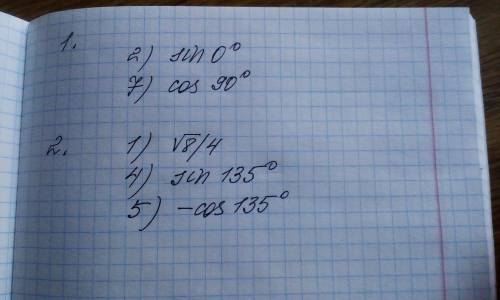 1.
2) sin 0°
7) cos 90°
2.
1) √8/4
4) sin 135°
5) -cos 135°